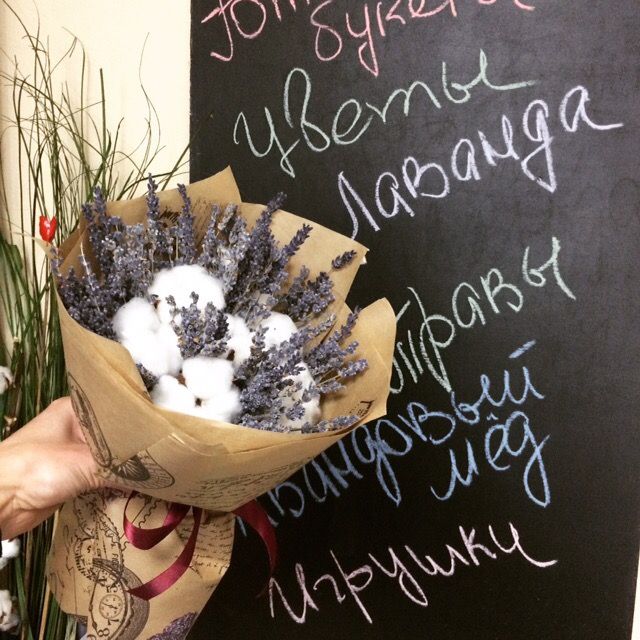 букеты
цветы
Лаванда
травы
вандовый
мёд
Игрушки